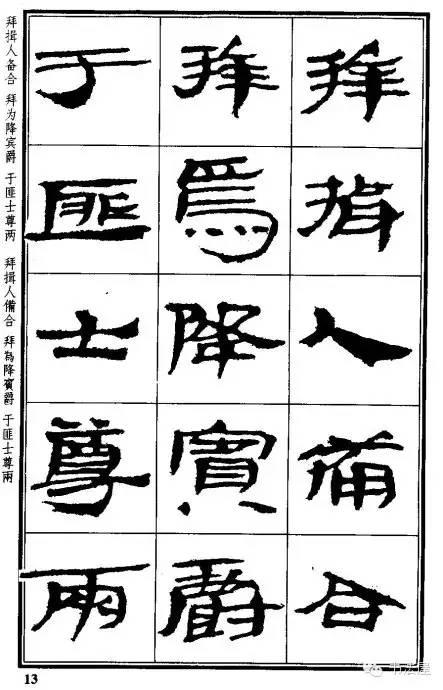 拜揖人備合
拜為降賓爵
于匪士尊兩
拜揖人备合 拜为降宾爵 于匪士尊两 拜揖人備合 拜為降賓爵 于匪士尊兩
13
书法屋